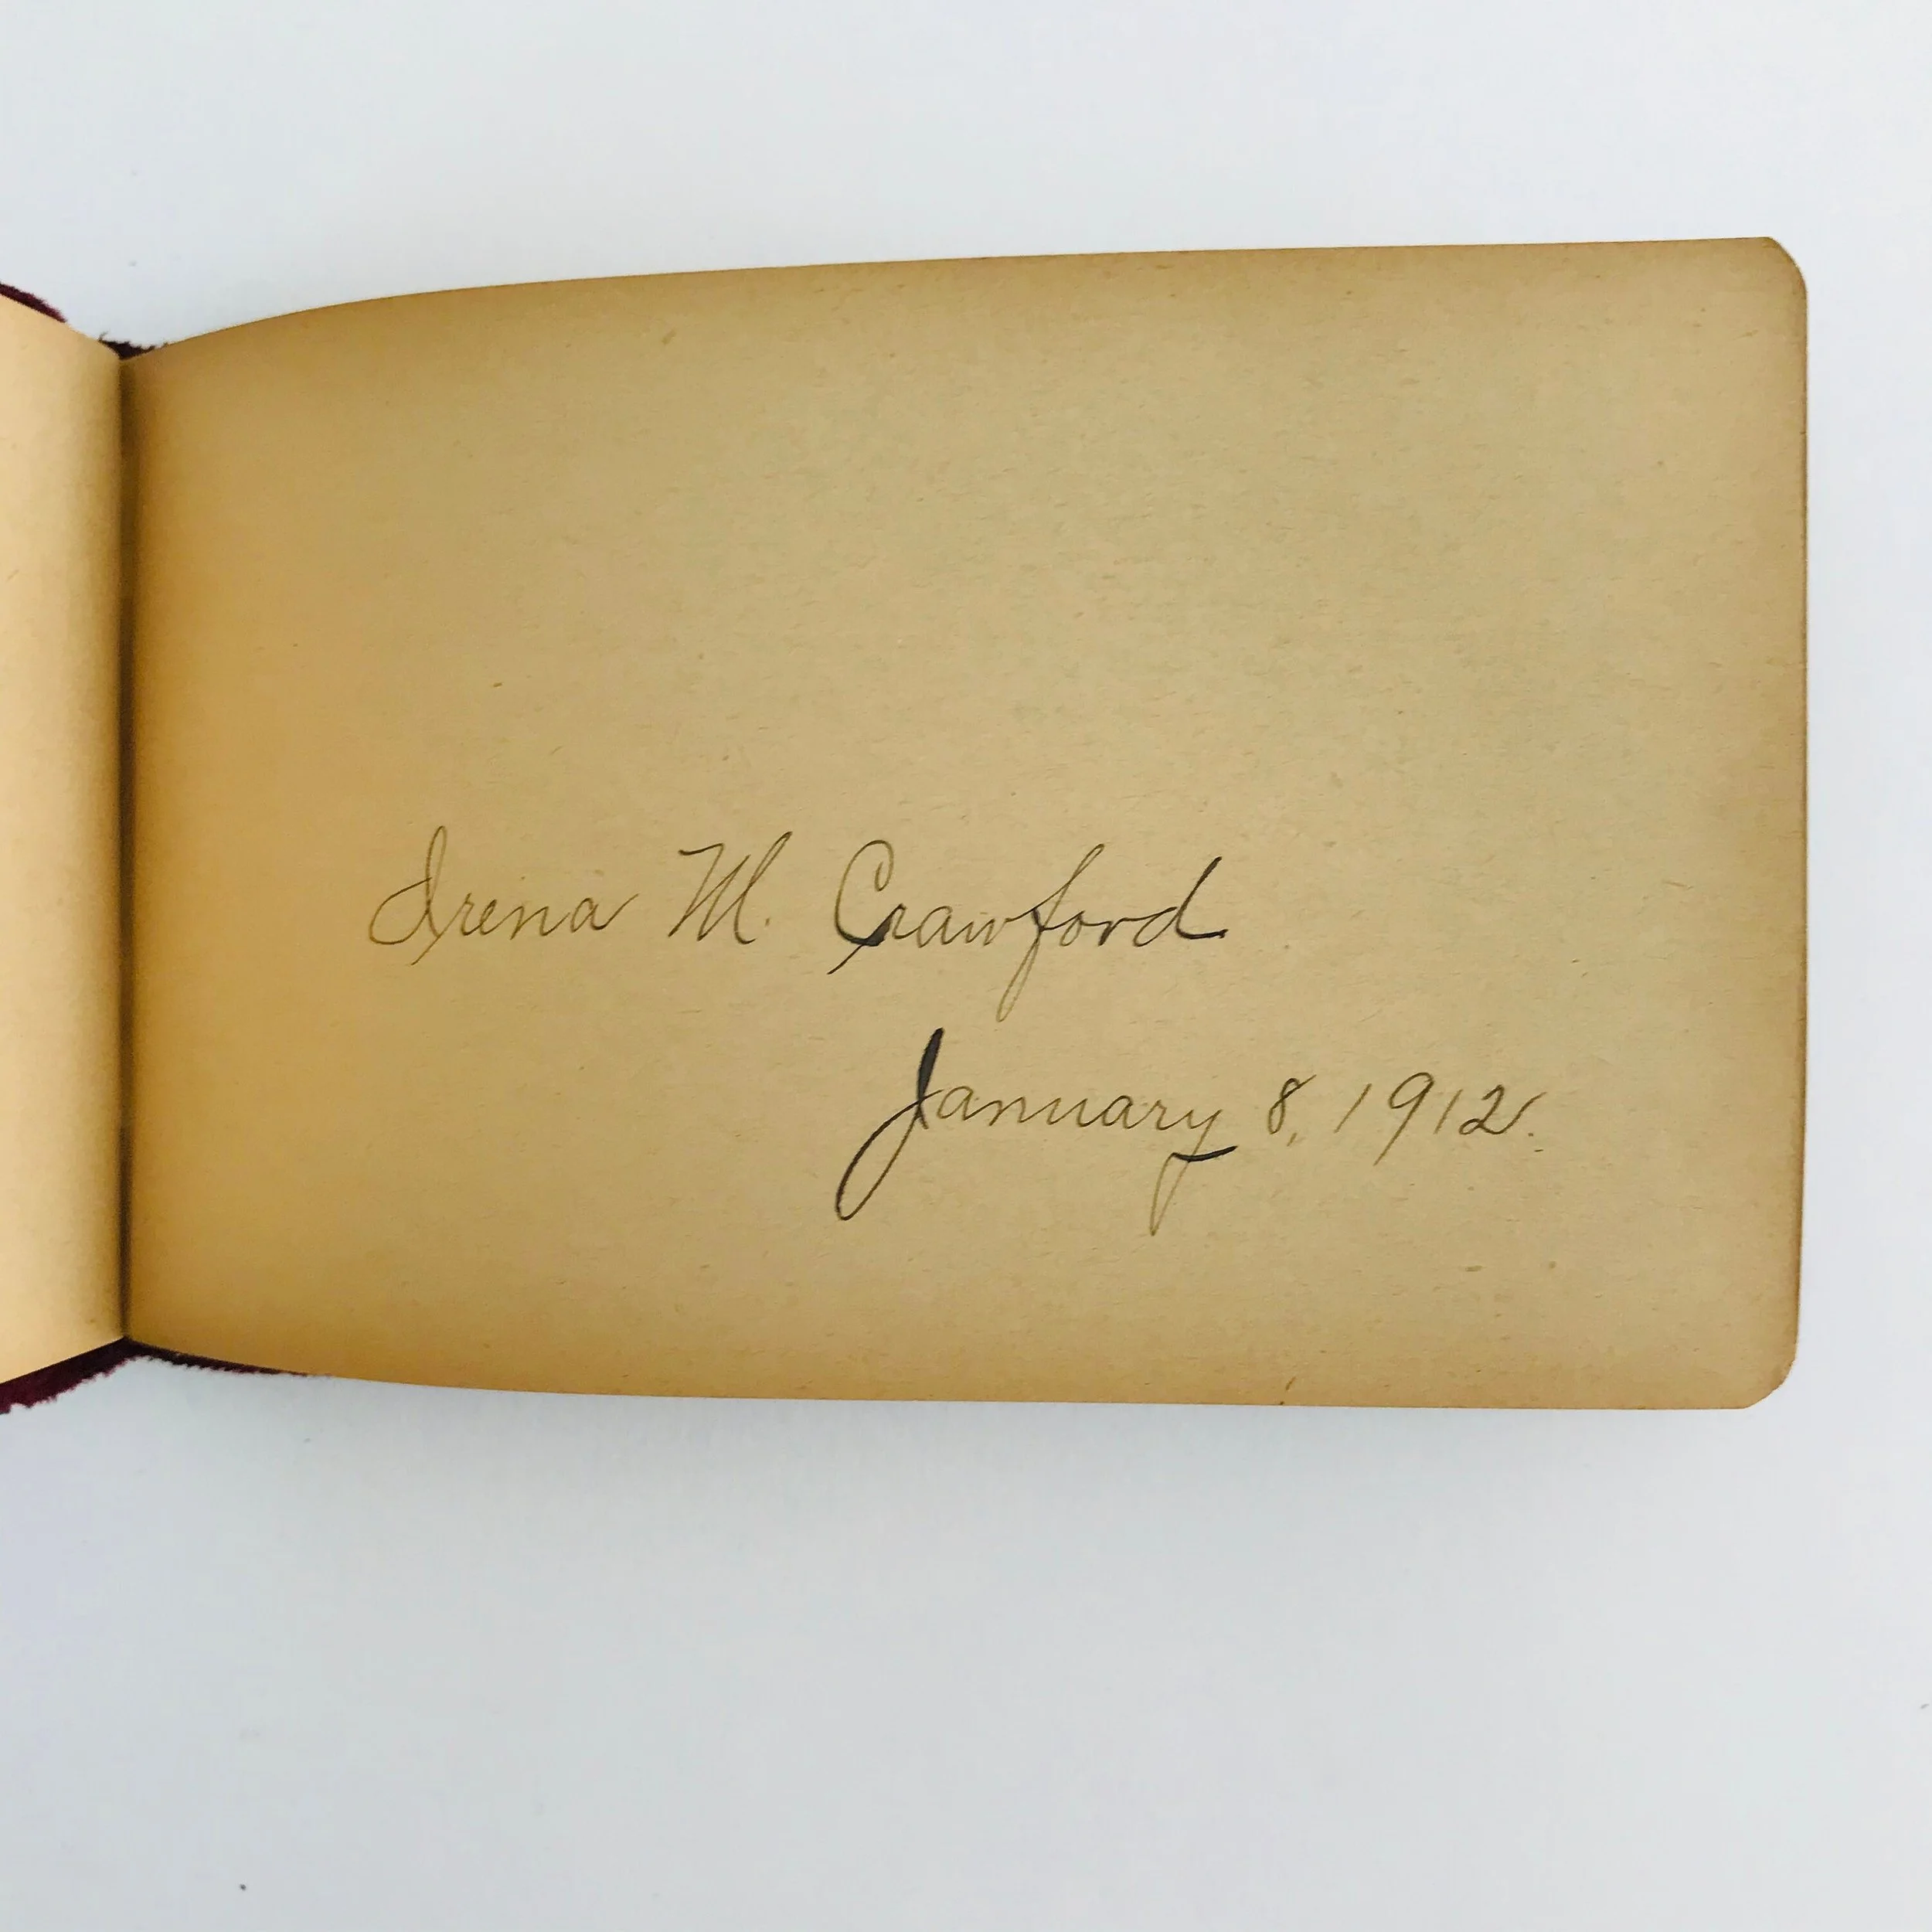 Irena M. Crawford
January 8, 1912.